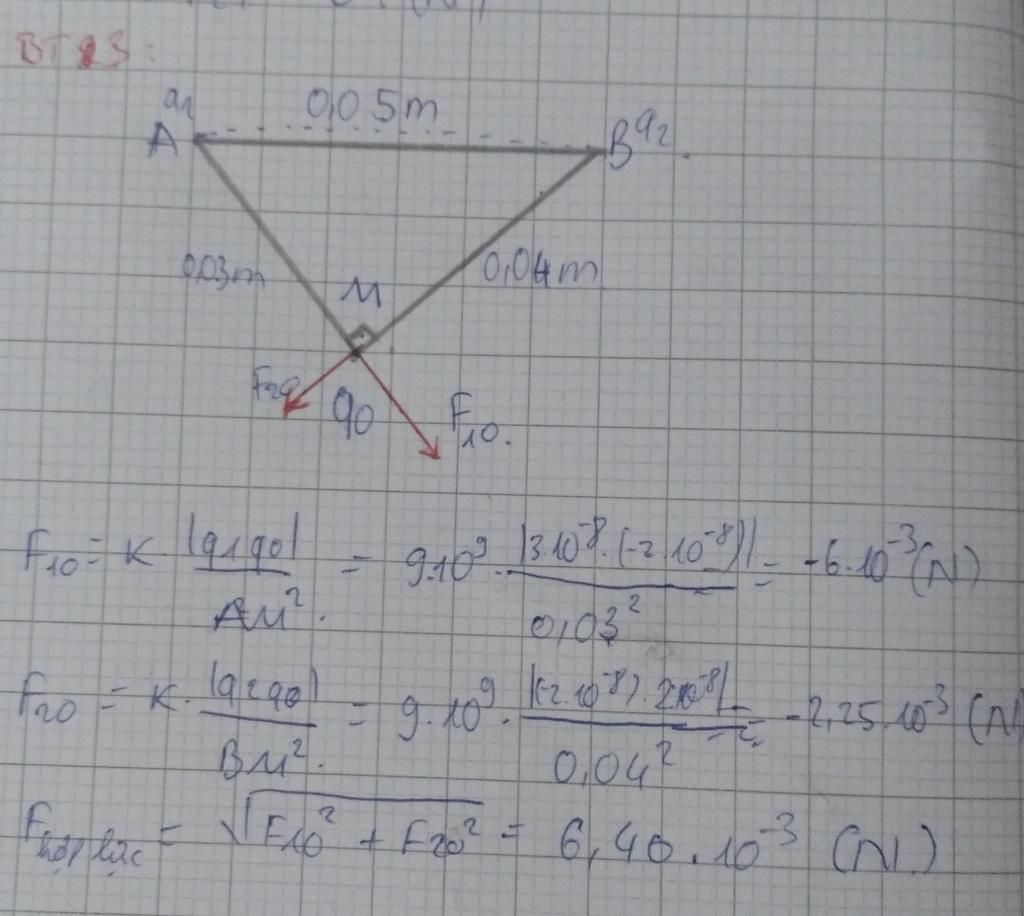 BT 23:
q₁ 0,05m q₂
A B
0,03m M 0,04m
F₂₀ q₀ F₁₀.
F₁₀ = K |q₁q₀| / AM². = 9.10⁹. |3.10⁻⁸.(-2.10⁻⁸)| / 0,03² = -6.10⁻³(N)
F₂₀ = K. |q₂q₀| / BM². = 9.10⁹. |(-2.10⁻⁸).2.10⁻⁸| / 0,04² = -2,25.10⁻³ (N)
F hợp lực = √F₁₀² + F₂₀² = 6,40.10⁻³ (N)